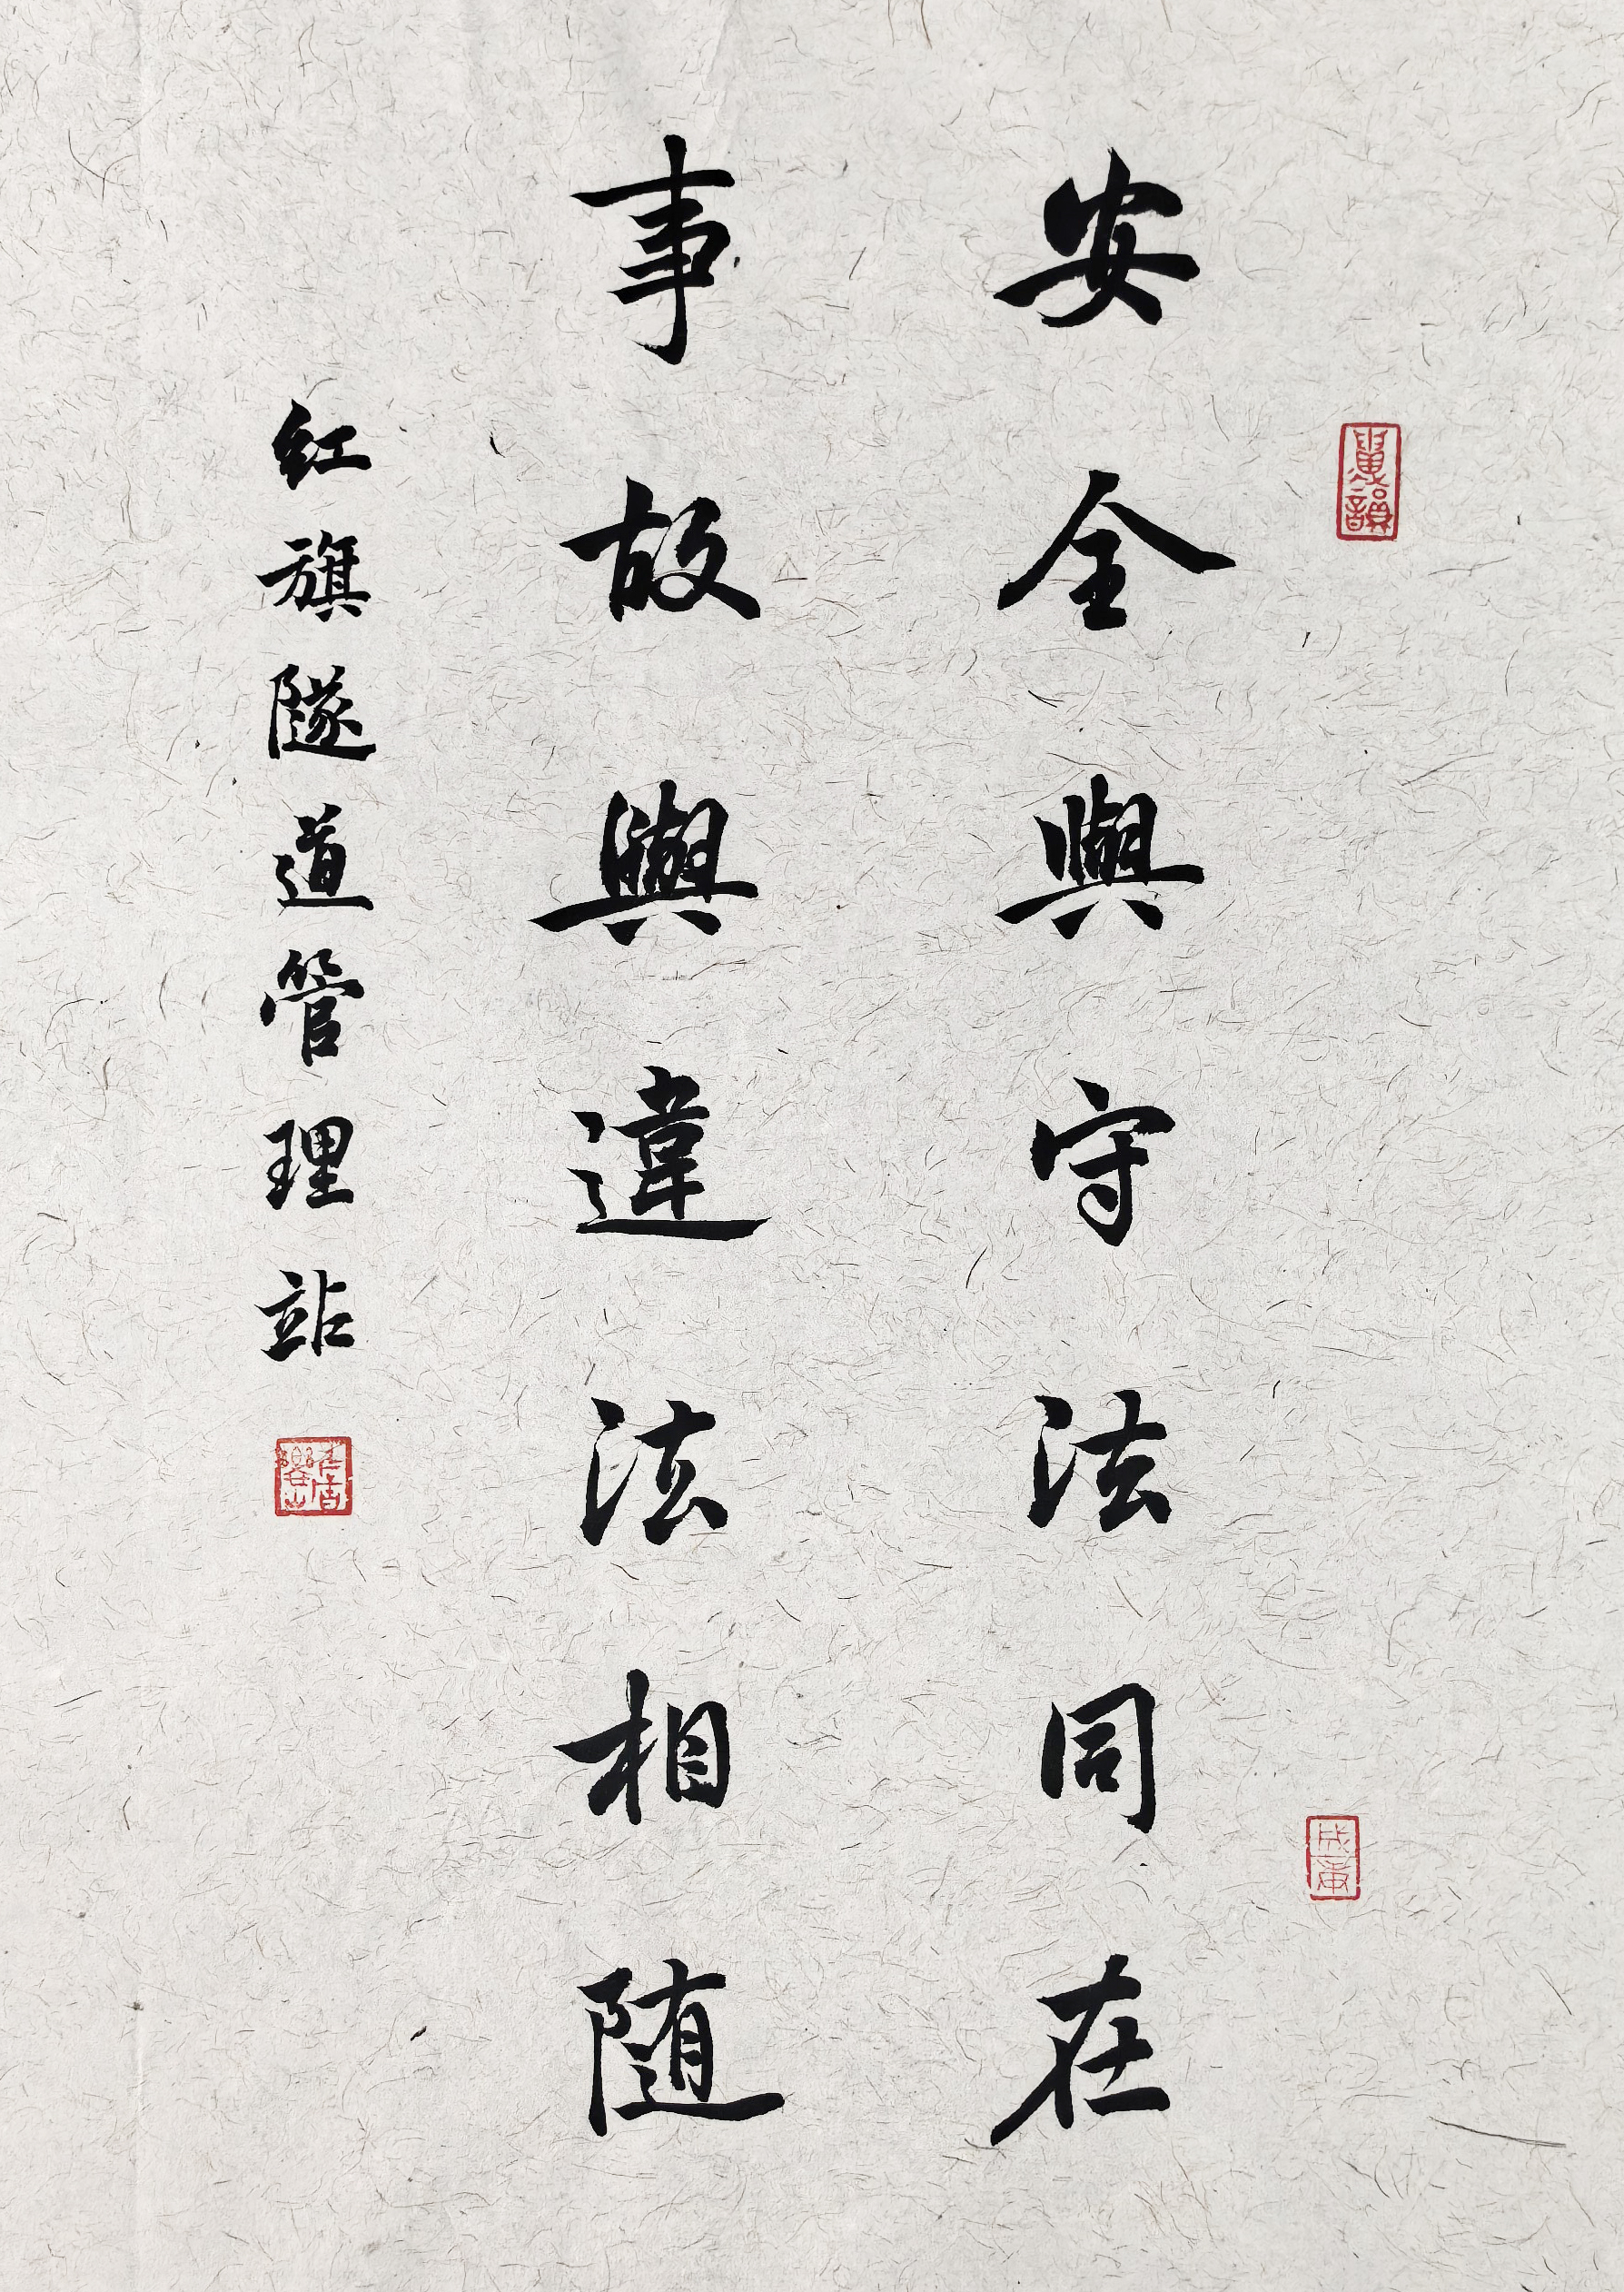 安全與守法同在
事故與違法相随
红旗隧道管理站